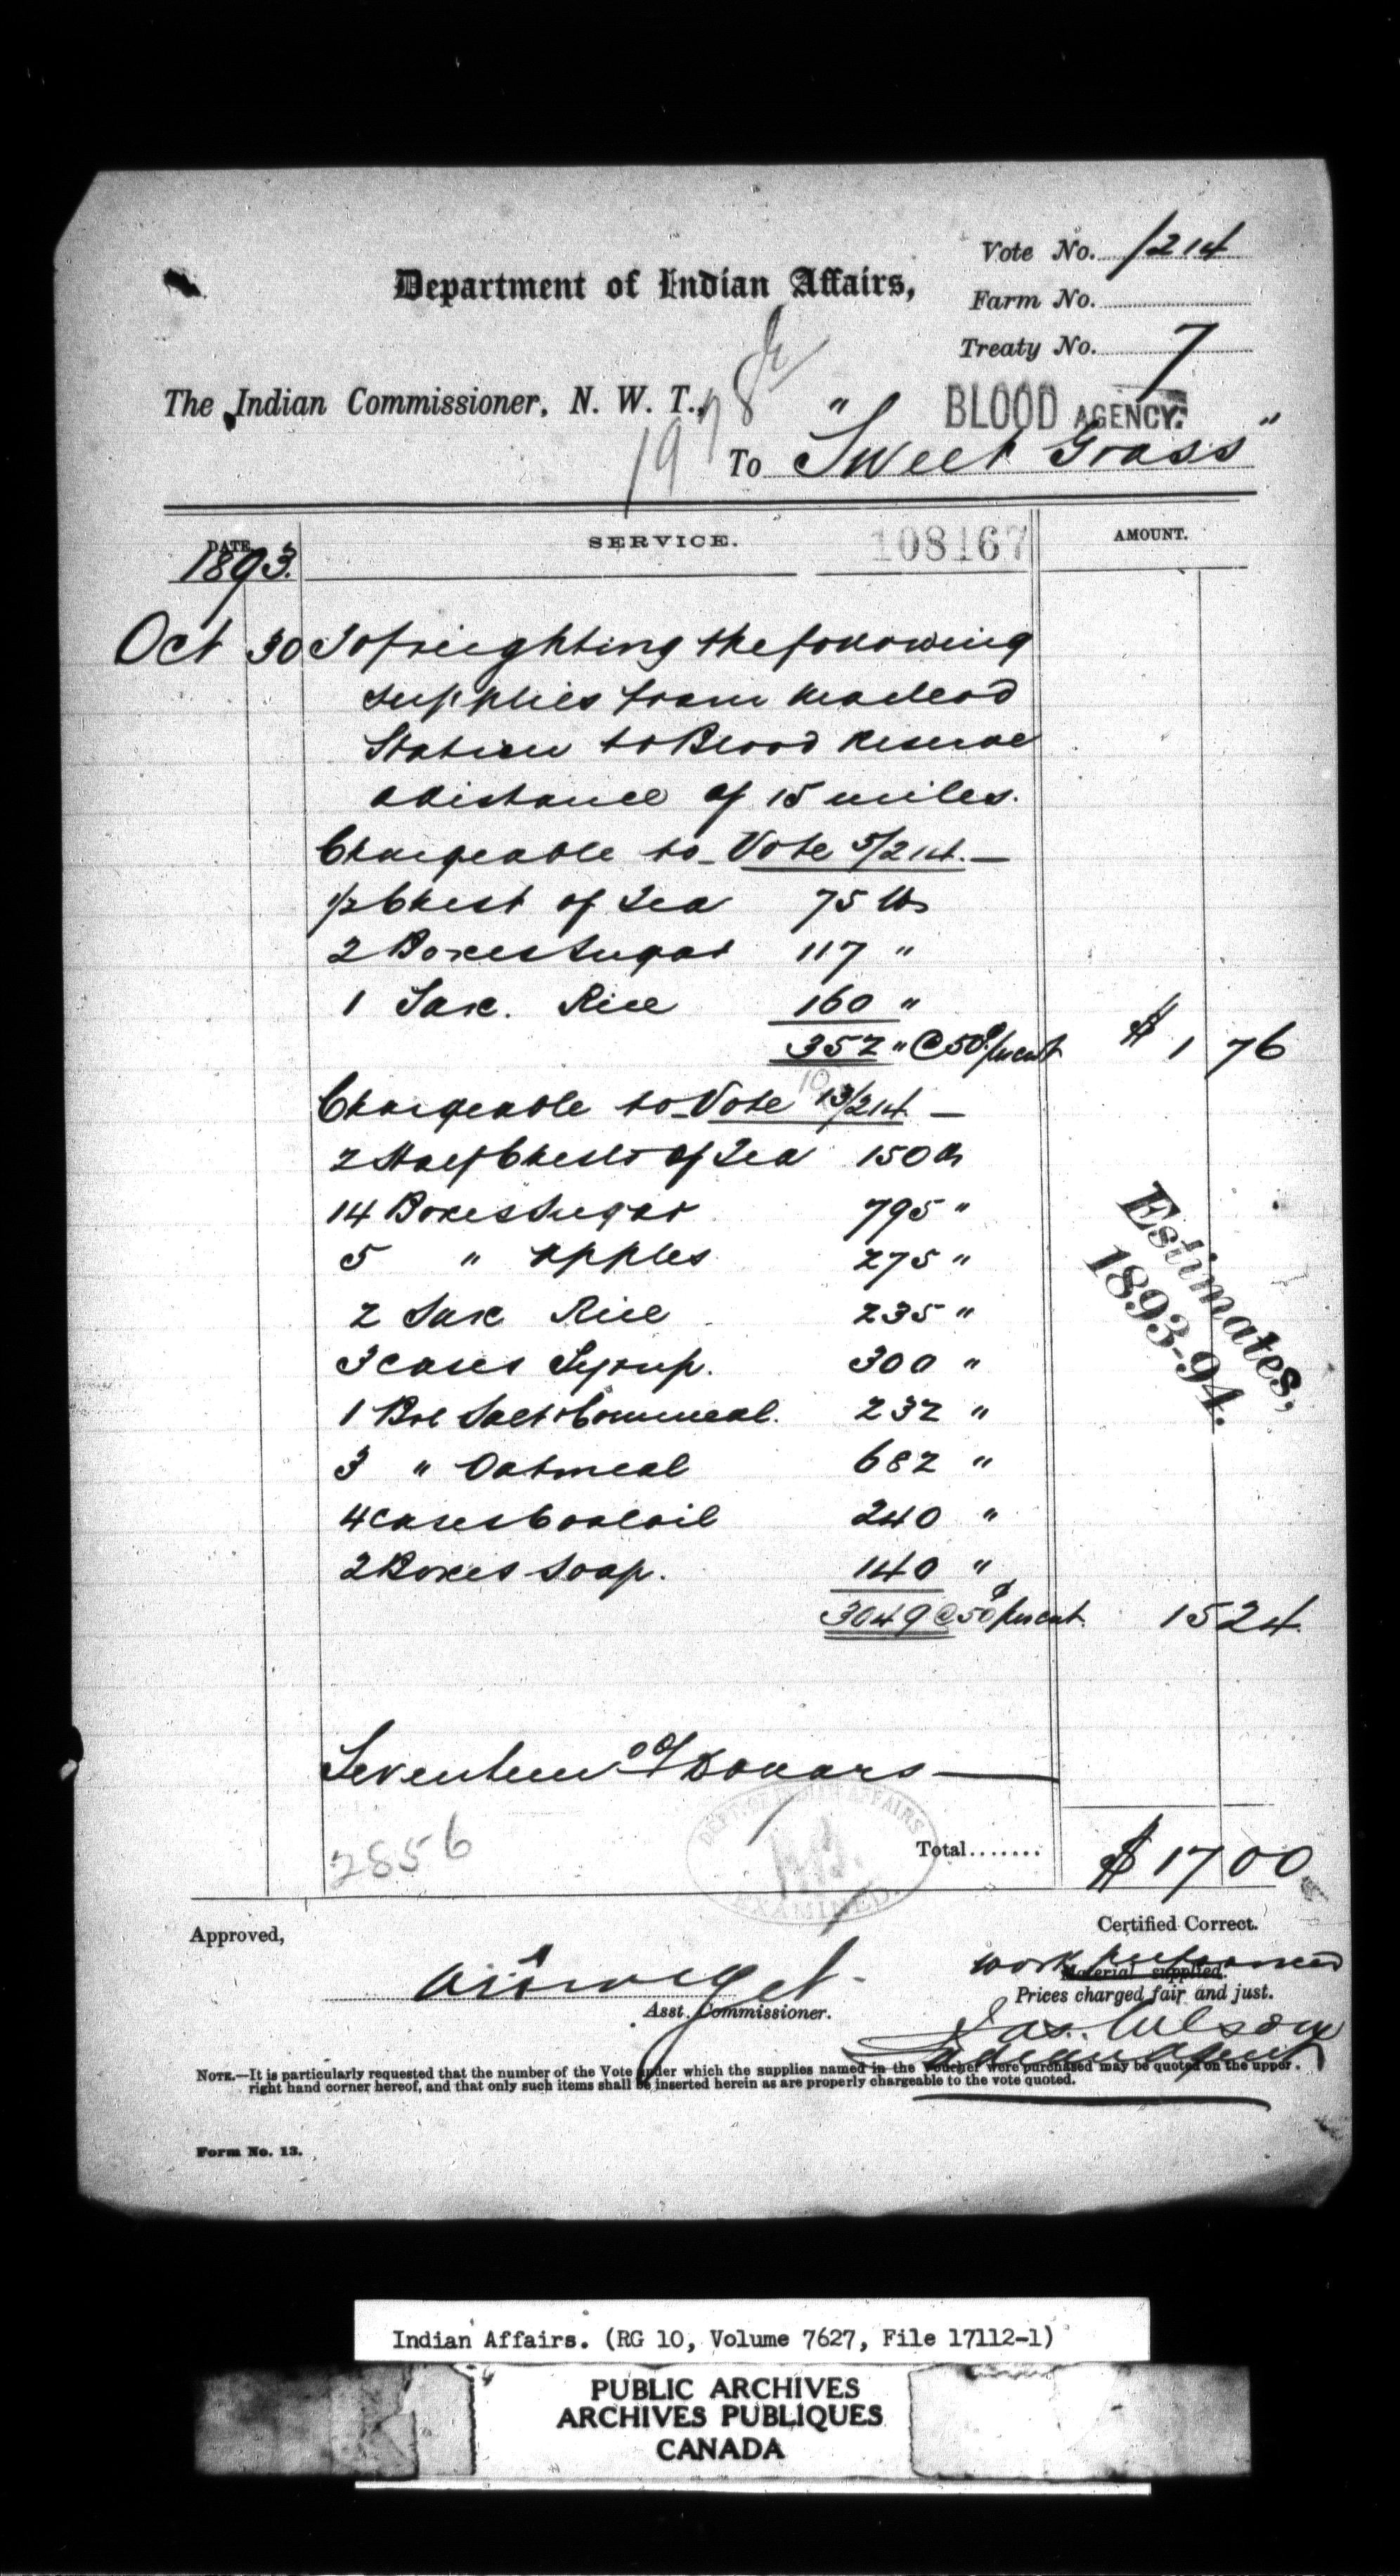 Vote No. 1214
Department of Indian Affairs,
Farm No.
Treaty No. 7
The Indian Commissioner, N. W. T.,
BLOOD AGENCY.
To "Sweet Grass"
DATE.
SERVICE.
108167
AMOUNT.
1893.
Oct 30 To freighting the following
supplies from Macleod
Station to Blood Reserve
a distance of 15 miles.
Chargeable to Vote 5/214. —
1/2 Chest of Tea 75 lbs
2 Boxes Sugar 117 "
1 Sax. Rice 160 "
352 " @ 50¢ per cwt $ 1 76
10
Chargeable to Vote 13/214 —
2 Half Chests of Tea 150 lb
14 Boxes Sugar 795 "
5 " Apples 275 "
2 Sax Rice 235 "
3 cases Syrup. 300 "
1 Bbl Salt & Cornmeal. 232 "
3 " Oatmeal 682 "
4 cases Coal oil 240 "
2 Boxes Soap. 140 "
3049 @ 50¢ per cwt. 15 24
Estimates,
1893-94.
Seventeen 00/ Dollars
2856
DEPT. OF INDIAN AFFAIRS
EXAMINED.
Total....... $ 17 00
Approved,
Certified Correct.
work performed
Material supplied.
Prices charged fair and just.
Asst. Commissioner.
Jas. Wilson
Indian Agent
NOTE.—It is particularly requested that the number of the Vote under which the supplies named in the Voucher were purchased may be quoted on the upper
right hand corner hereof, and that only such items shall be inserted herein as are properly chargeable to the vote quoted.
Form No. 13.
Indian Affairs. (RG 10, Volume 7627, File 17112-1)
PUBLIC ARCHIVES
ARCHIVES PUBLIQUES
CANADA